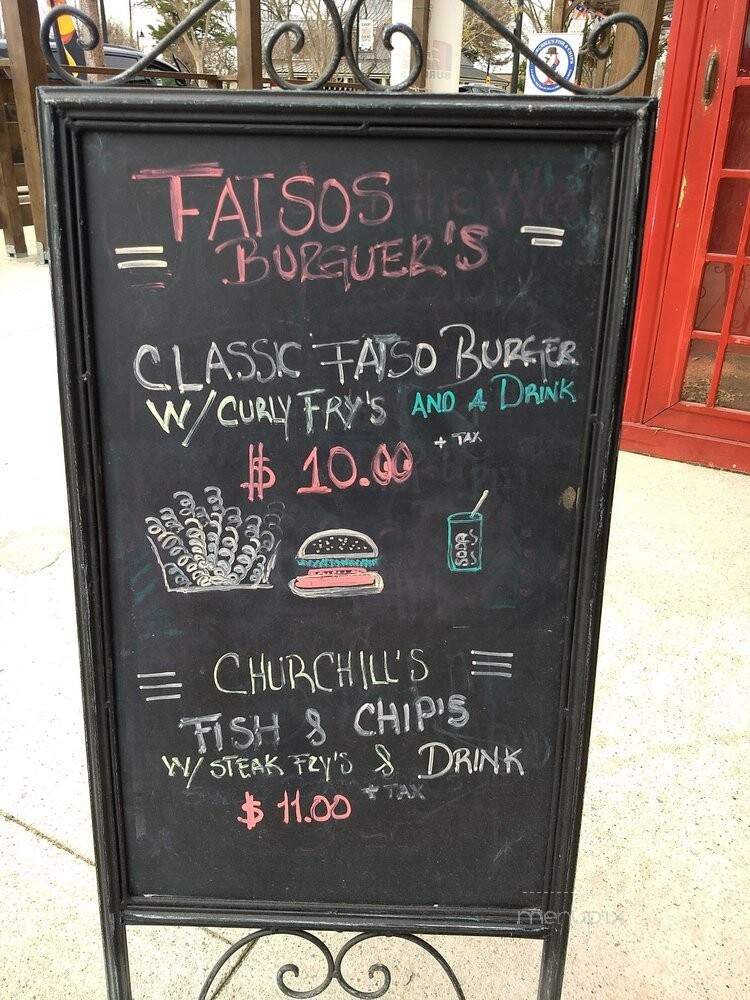 FATSOS
BURGUER'S
CLASSIC FATSO BURGER
W/ CURLY FRY'S AND A DRINK
+ TAX
$ 10.00
SODA
CHURCHILL'S
FISH & CHIP'S
W/ STEAK FRY'S & DRINK
$ 11.00 + TAX
menupix